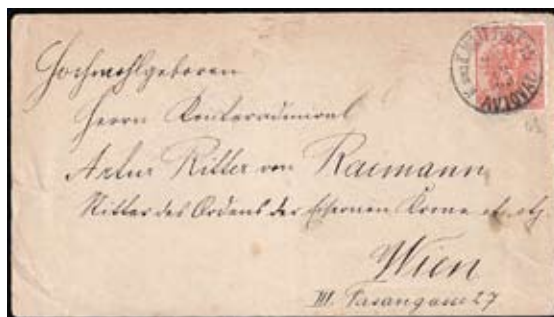 Hochwohlgeboren
Herrn Konteradmiral
Artur Ritter von Raemann
Ritter des Ordens der Eisernen Krone etc etz
Wien
III. Fasangasse 27